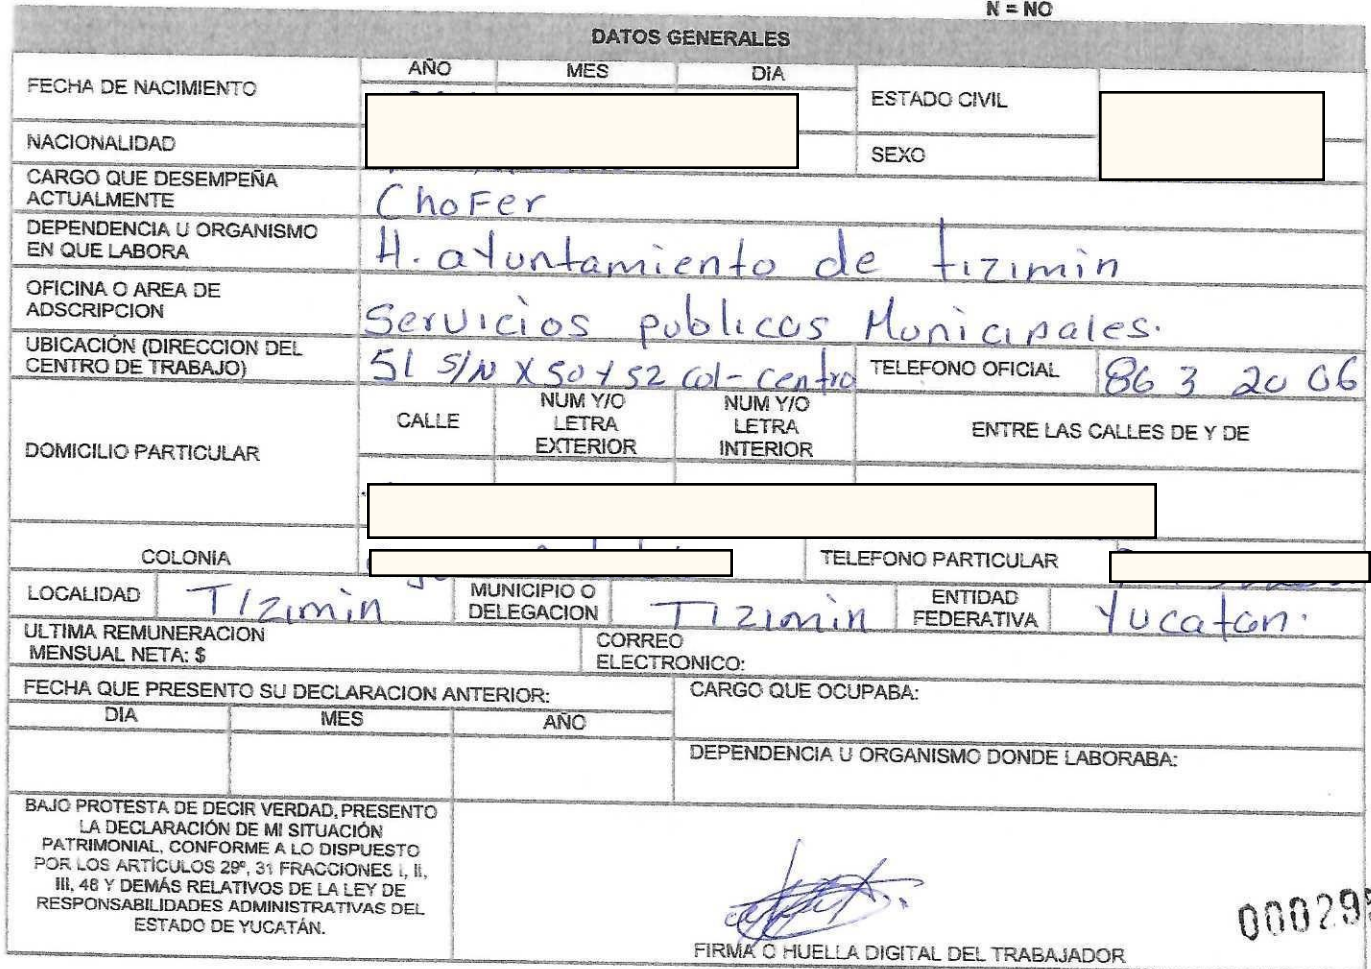 N = NO
DATOS GENERALES
FECHA DE NACIMIENTO
AÑO MES DIA
ESTADO CIVIL
NACIONALIDAD
SEXO
CARGO QUE DESEMPEÑA
ACTUALMENTE
Chofer
DEPENDENCIA U ORGANISMO
EN QUE LABORA
H. ayuntamiento de tizimin
OFICINA O AREA DE
ADSCRIPCION
Servicios publicos Municipales.
UBICACIÓN (DIRECCION DEL
CENTRO DE TRABAJO)
51 S/N X 50 y 52 col- centro
TELEFONO OFICIAL
863 20 06
DOMICILIO PARTICULAR
CALLE
NUM Y/O
LETRA
EXTERIOR
NUM Y/O
LETRA
INTERIOR
ENTRE LAS CALLES DE Y DE
COLONIA
TELEFONO PARTICULAR
LOCALIDAD
Tizimin
MUNICIPIO O
DELEGACION
Tizimin
ENTIDAD
FEDERATIVA
Yucatan.
ULTIMA REMUNERACION
MENSUAL NETA: $
CORREO
ELECTRONICO:
FECHA QUE PRESENTO SU DECLARACION ANTERIOR:
CARGO QUE OCUPABA:
DIA MES AÑO
DEPENDENCIA U ORGANISMO DONDE LABORABA:
BAJO PROTESTA DE DECIR VERDAD, PRESENTO
LA DECLARACIÓN DE MI SITUACIÓN
PATRIMONIAL, CONFORME A LO DISPUESTO
POR LOS ARTÍCULOS 29º, 31 FRACCIONES I, II,
III, 48 Y DEMÁS RELATIVOS DE LA LEY DE
RESPONSABILIDADES ADMINISTRATIVAS DEL
ESTADO DE YUCATÁN.
FIRMA O HUELLA DIGITAL DEL TRABAJADOR